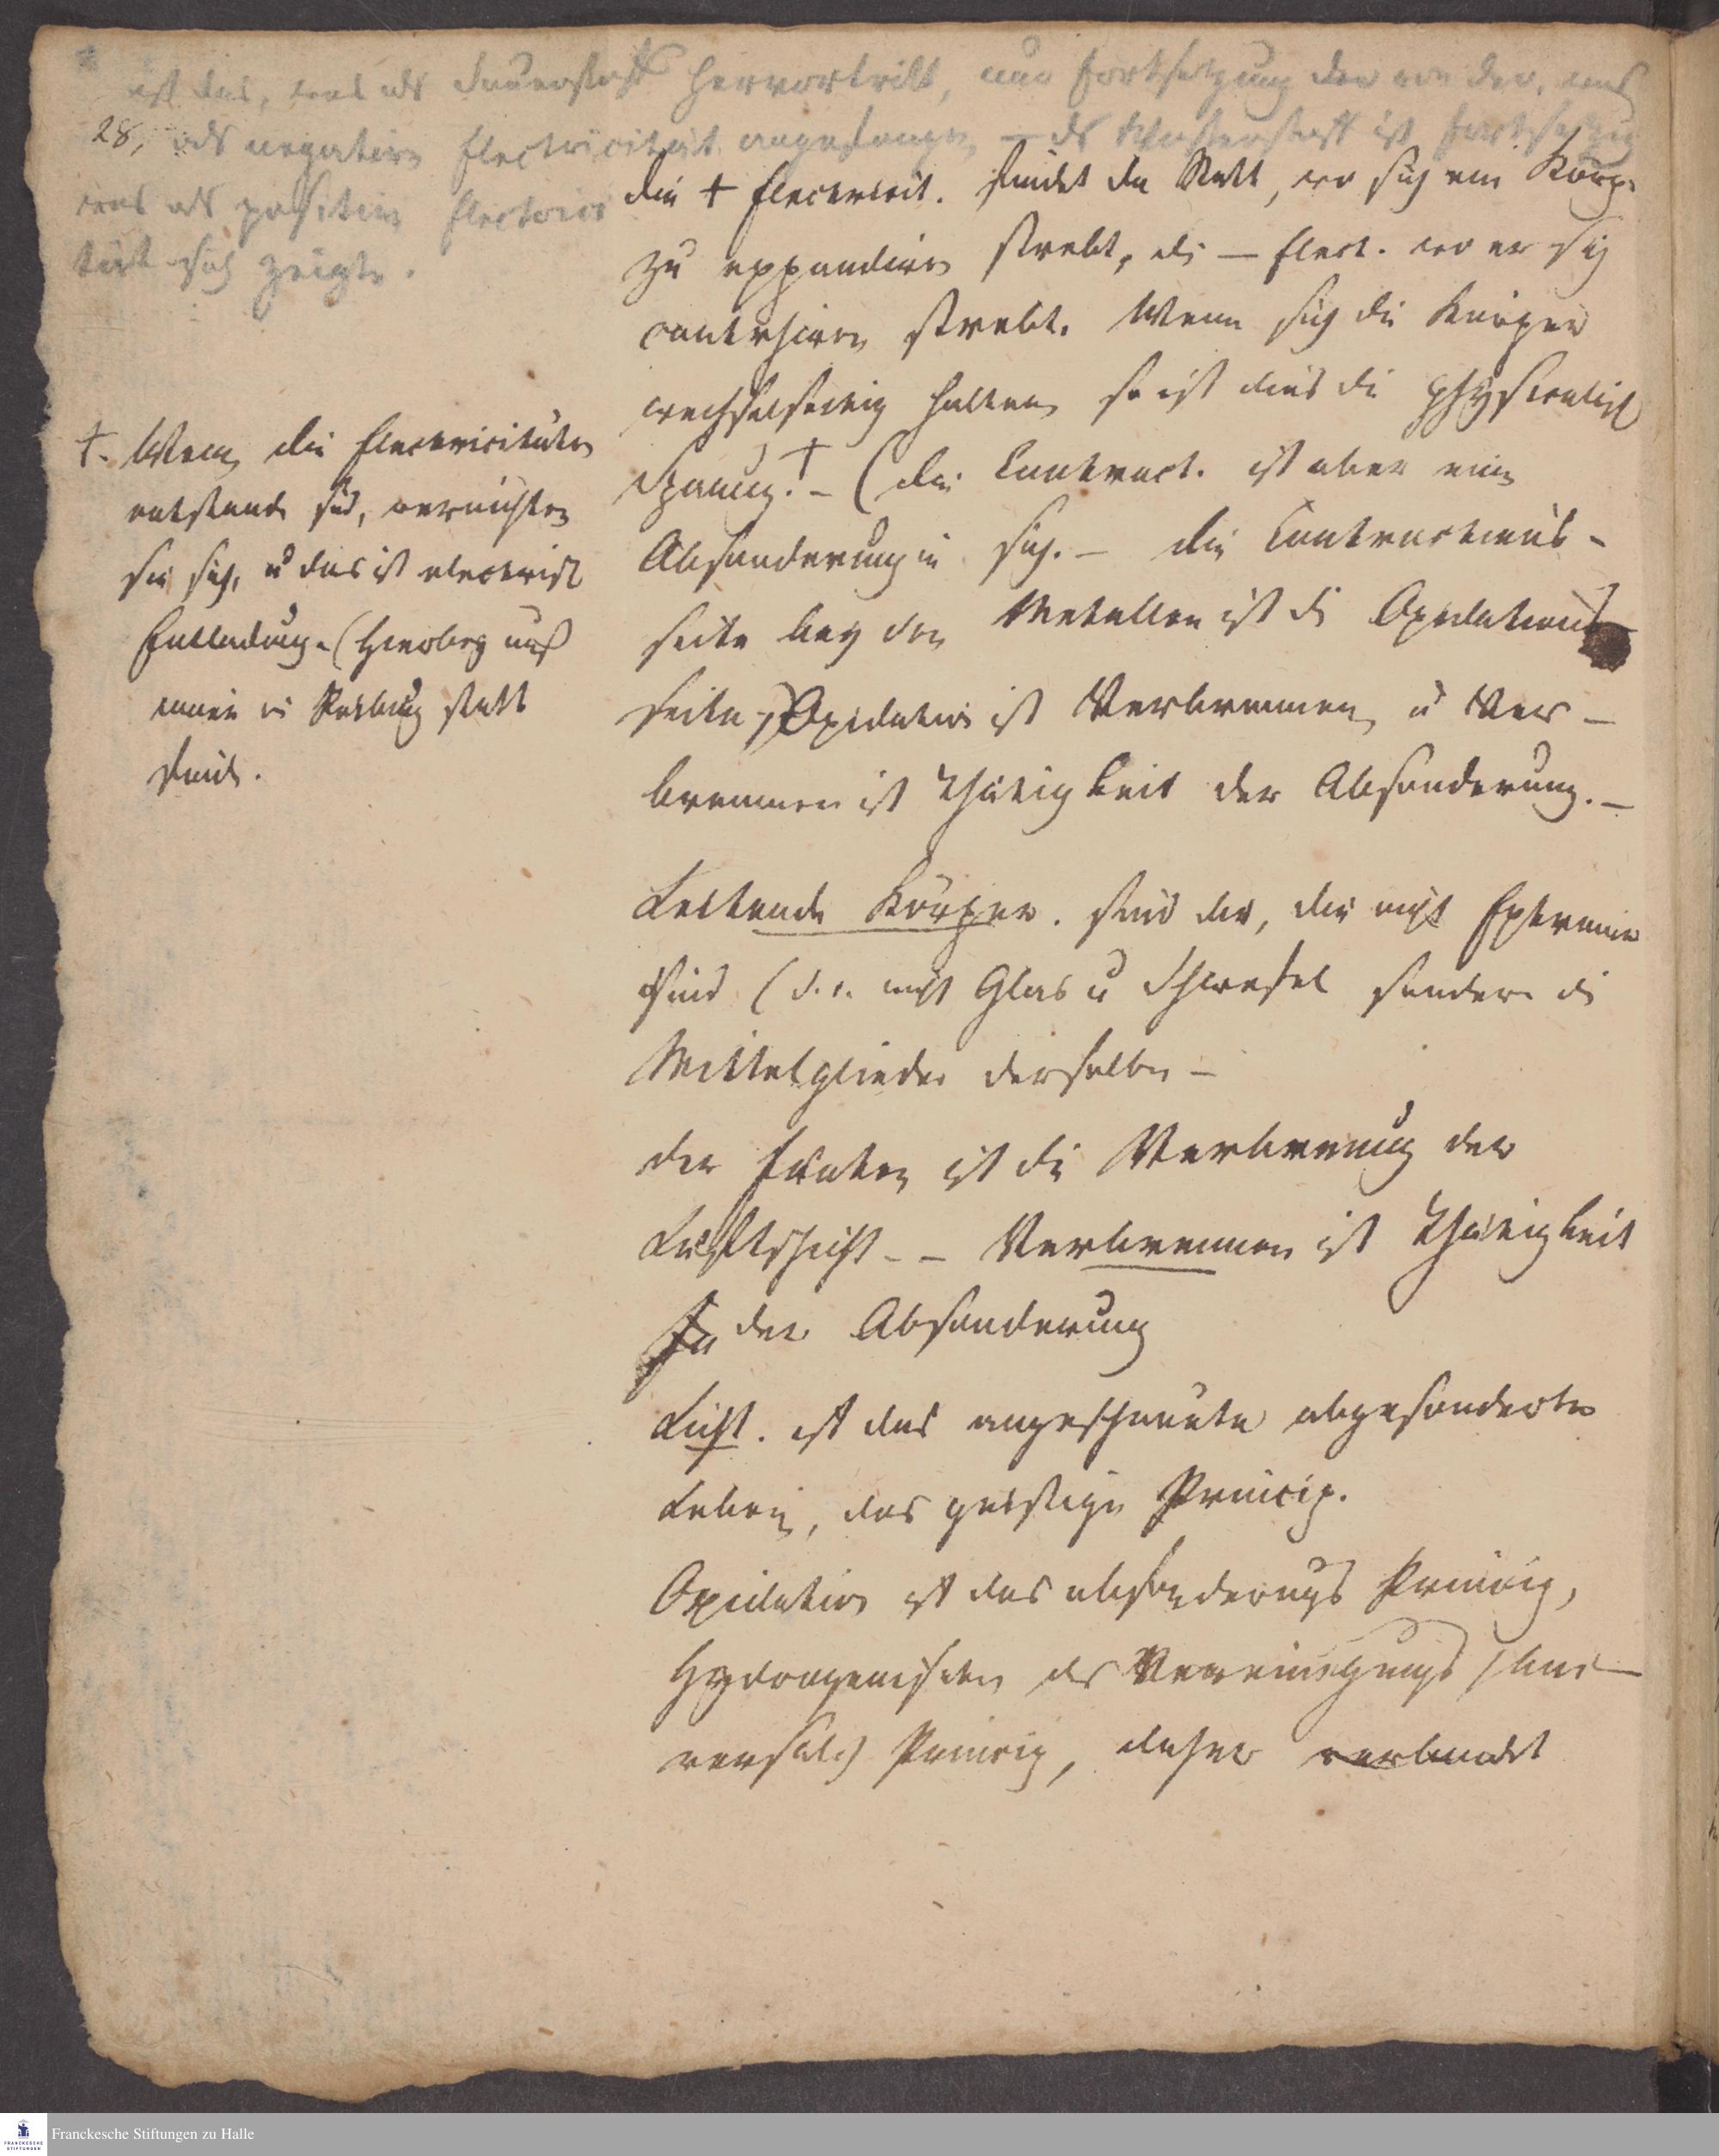 ist das, was als Sauerstoff hervortritt, nur Fortsetzung der von der, was
28, als negative Electricität angefangen, – d Wasserstoff ist Fortsetzung
was als positive Electrici
tät sich zeigte.
die + Electricit. findet da Statt, wo sich ein Körp.
zu expandiren strebt, die – Elect. wo er sich
contrahiren strebt. Wenn sich die Körper
wechselseitig halten so ist dies die physicalisch
Spanug. † – (die Contract. ist aber eine
Absonderung in sich. – die Contractions-
seite bey den Metallen ist di Oxydations
seite –) Oxidation ist Verbrennen, u Ver-
brennen ist Thätigkeit der Absonderung. –
†. Wenn die Electricitäten
entstande sind, vernichten
sie sich, u das ist electrisch
Entladung. (Hierbey muß
immer ei Reibug statt
finde.
Leitende Körper. sind die, die nicht Extreme
sind (d. i. nicht Glas u Schwefel sondern di
Mittelglieder derselben –
der Funken ist di Verbrenug der
Luftschicht – – Verbrennen ist Thätigkeit
der Absonderung
Licht. ist das angeschaute abgesonderte
Leben, das geistige Princip.
Oxidation ist das absonderugs Princip,
Hydrogenisiren das Vereinigungs (Uni-
versale) Princip, daher verbindet
Franckesche Stiftungen zu Halle